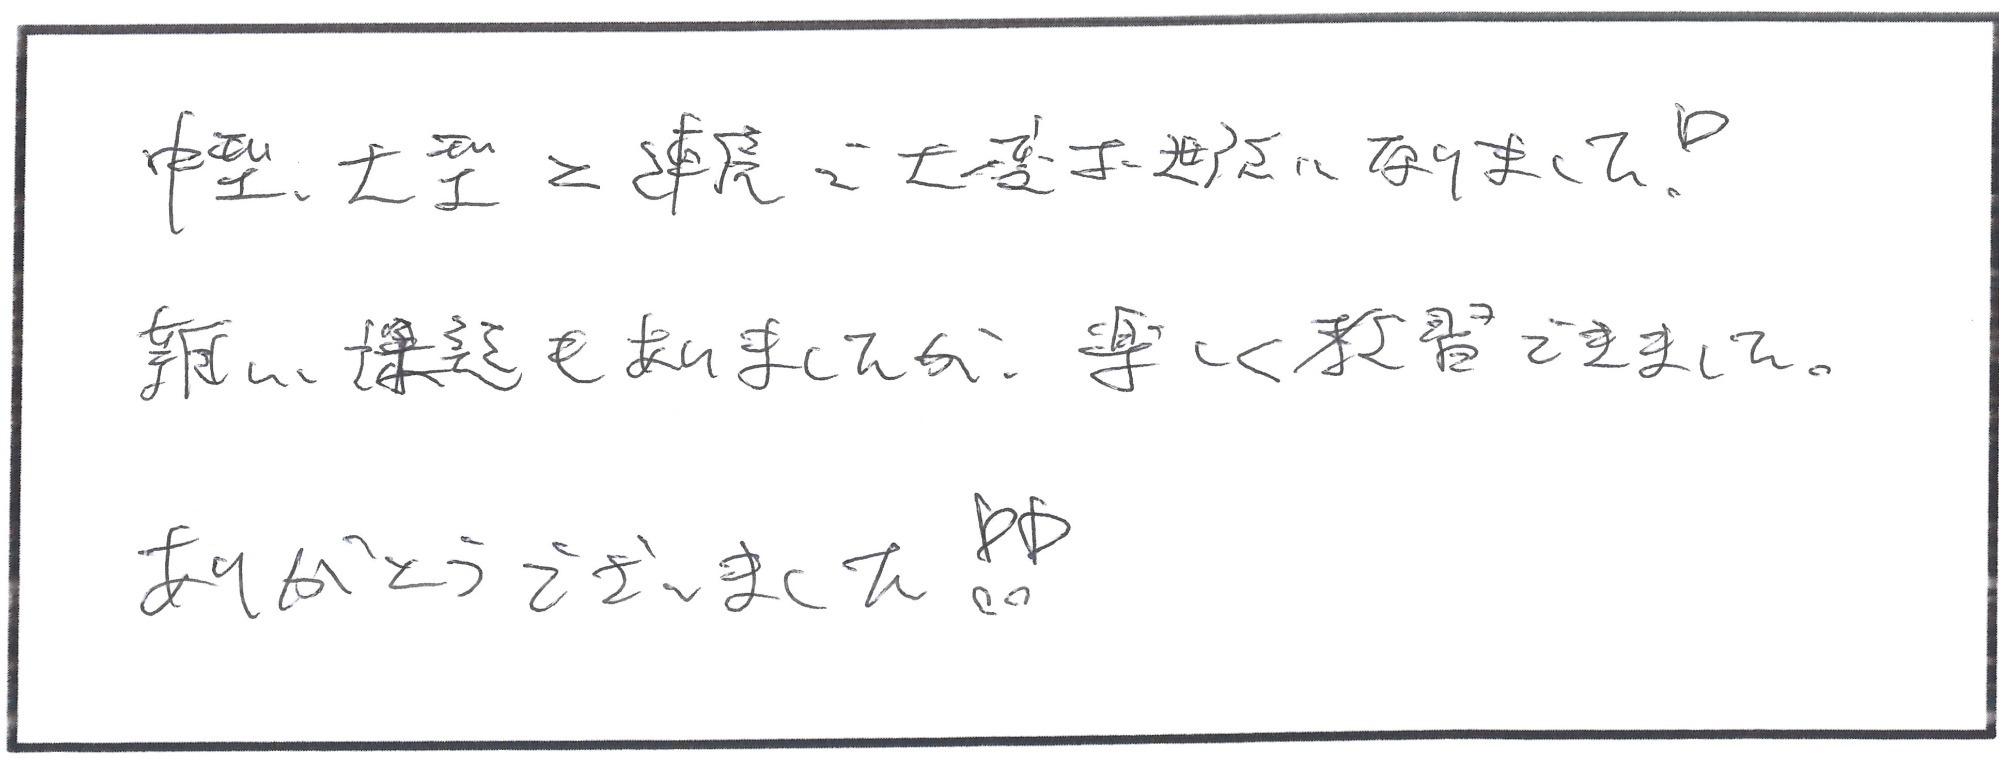 中型、大型と連続で大変お世話になりました!
難しい課題もありましたが、楽しく教習できました。
ありがとうございました!!